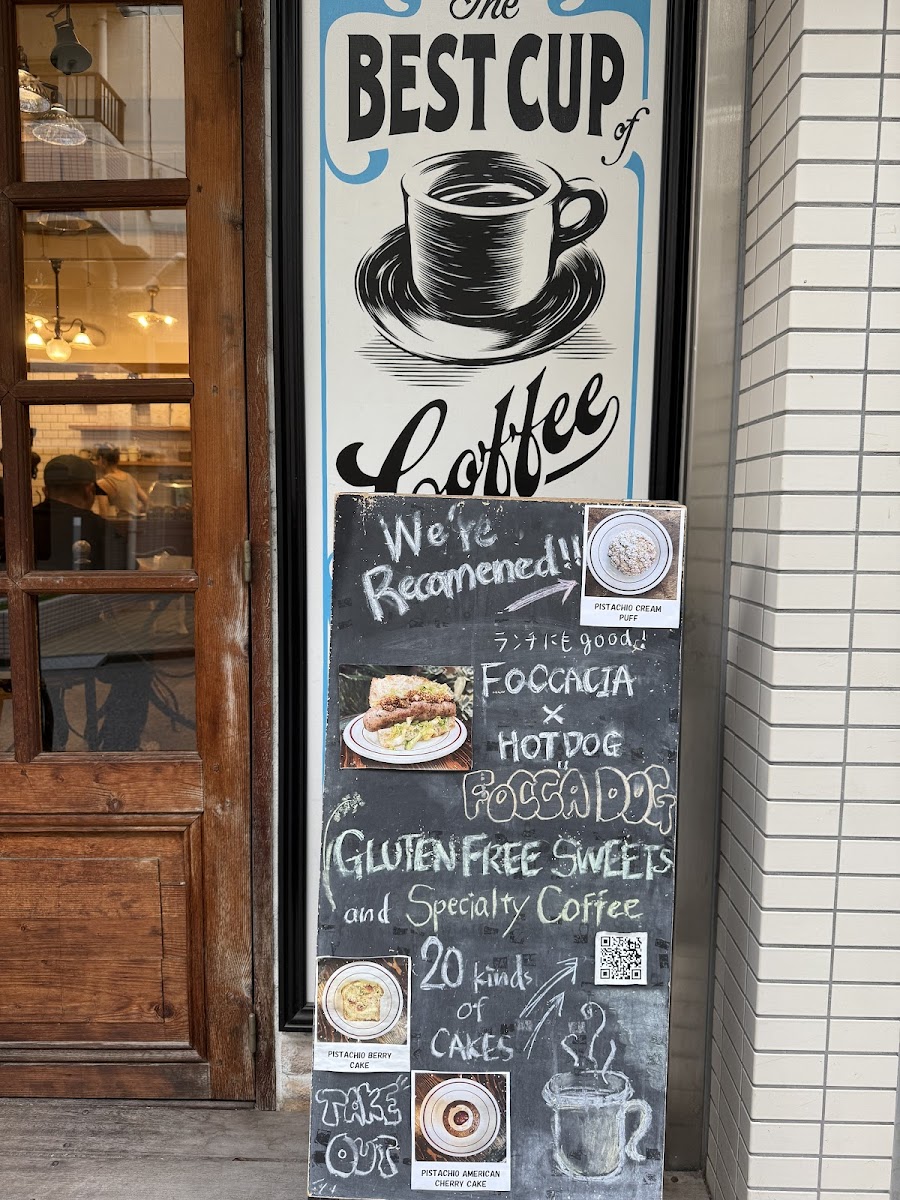 The
BEST CUP
of
Coffee
We're
Recamened!!
PISTACHIO CREAM
PUFF
ランチにも good♩
FOCCACIA
×
HOTDOG
FOCCA DOG
GLUTEN FREE SWEETS
and Specialty Coffee
20 kinds
of
CAKES
PISTACHIO BERRY
CAKE
TAKE
OUT
PISTACHIO AMERICAN
CHERRY CAKE